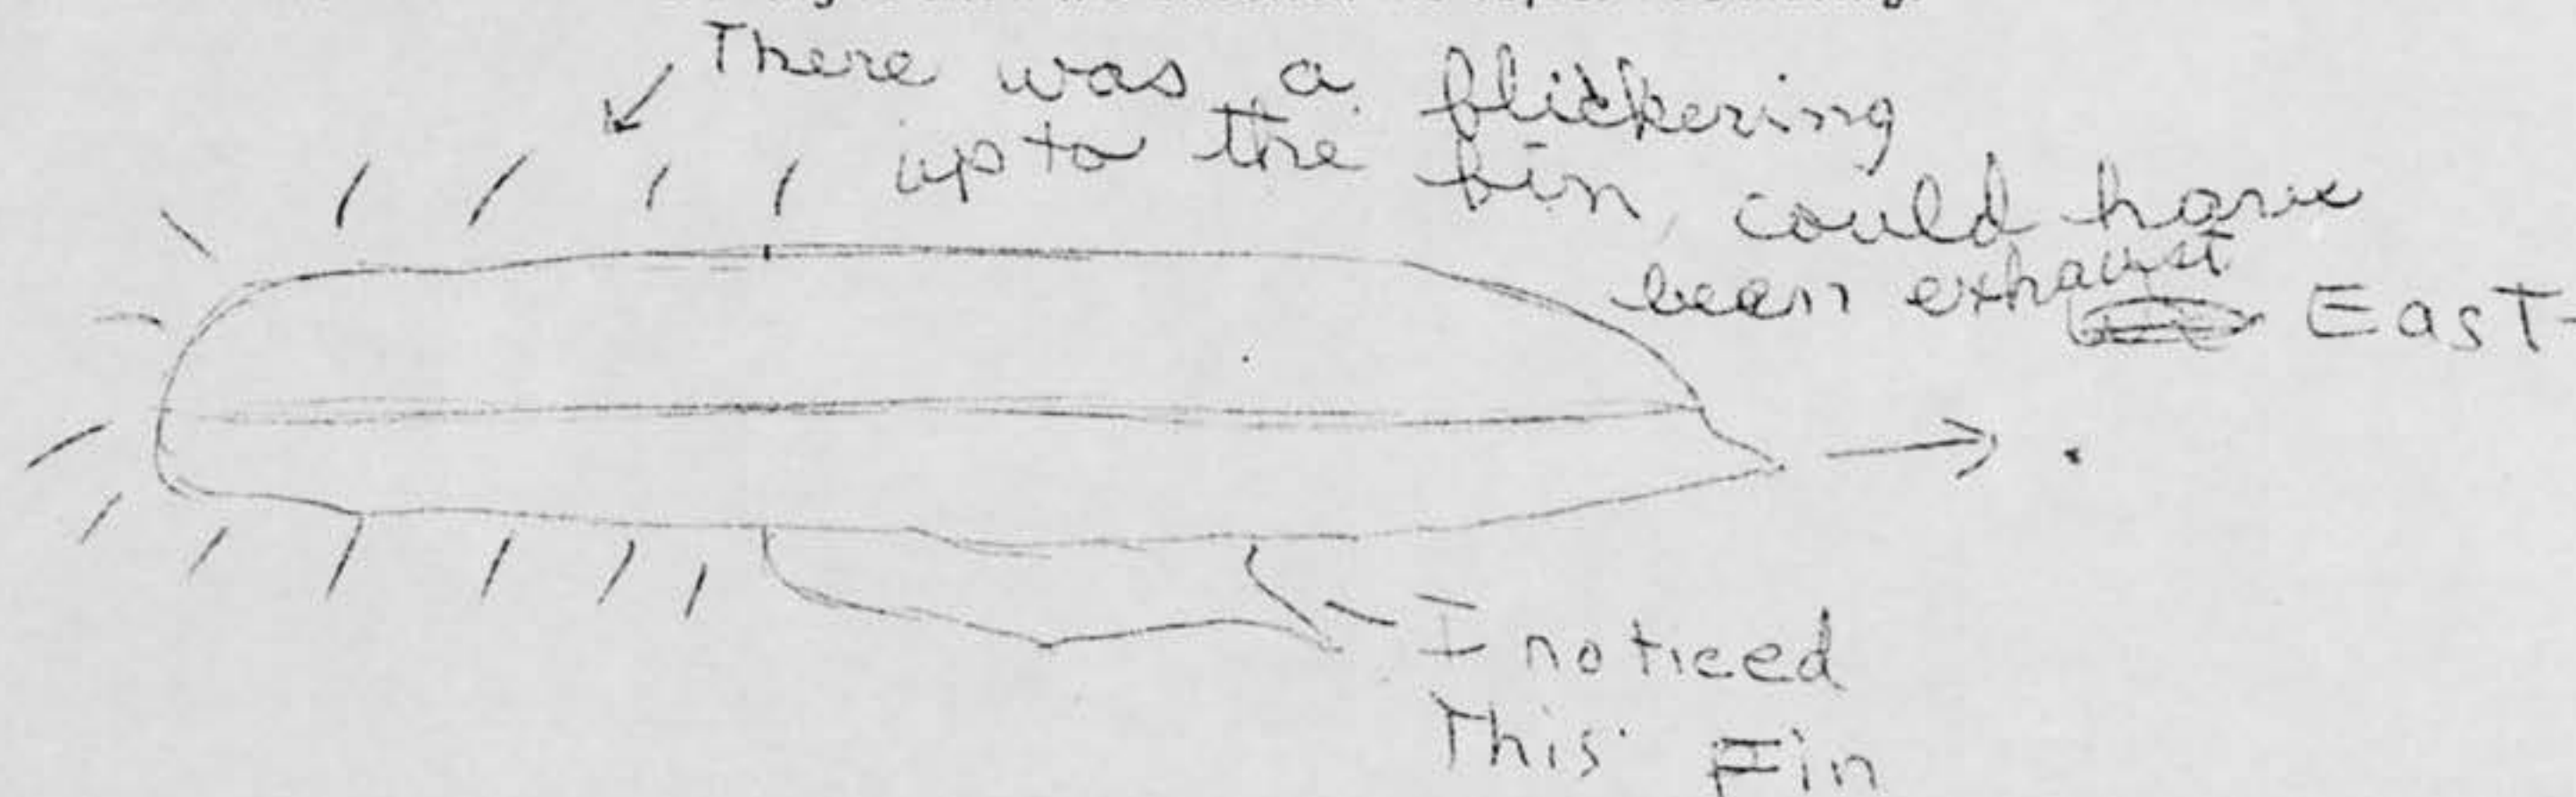 There was a flickering
up to the fin, could have
been exhaust
East
I noticed
This Fin